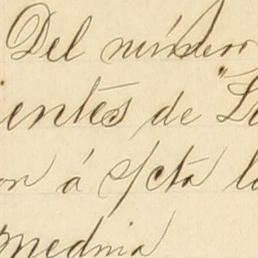 Del número
ientes de "La
on á s/cta l
media